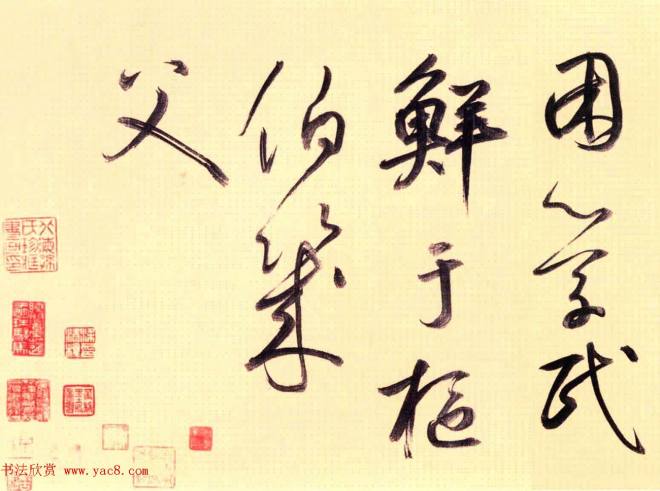 困學民
鮮于樞
伯幾
父
书法欣赏 www.yac8.com